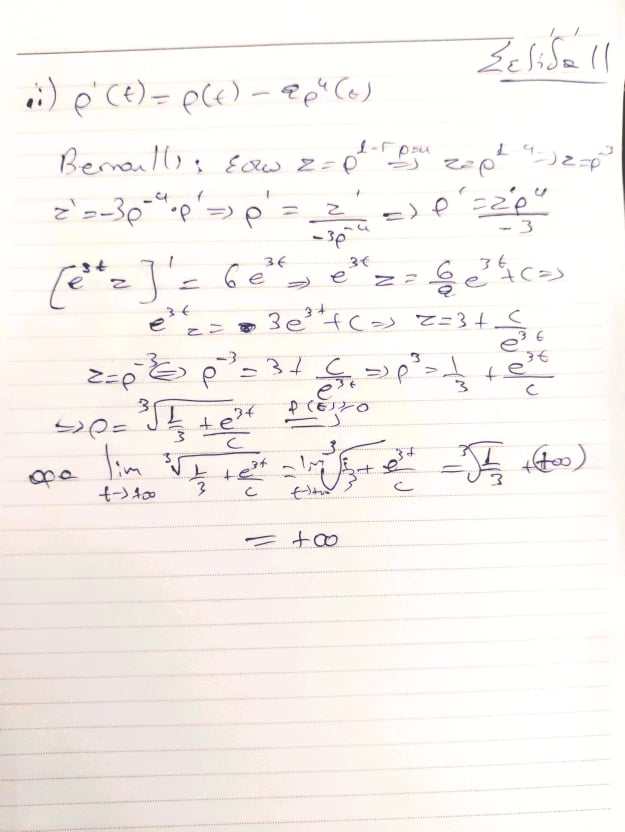 Σελίδα 11
ii) ρ'(t) = ρ(t) - 2ρ⁴(t)
Bernoulli: έστω z = ρ^{1-r} ⇒ z = ρ^{1-4} ⇒ z = ρ^{-3}
z' = -3ρ^{-4}·ρ' ⇒ ρ' = z'/(-3ρ^{-4}) ⇒ ρ' = z'ρ⁴/(-3)
[e^{3t} z]' = 6e^{3t} ⇒ e^{3t} z = 6/2 e^{3t} + C ⇒
e^{3t} z = 3e^{3t} + C ⇒ z = 3 + C/e^{3t}
z = ρ^{-3} ⇒ ρ^{-3} = 3 + C/e^{3t} ⇒ ρ³ = 1/3 + e^{3t}/C
⇒ ρ = ∛(1/3 + e^{3t}/C) ρ(t)>0
αρα lim t→+∞ ∛(1/3 + e^{3t}/C) = lim t→+∞ ∛(1/3 + e^{3t}/C) = ∛(1/3) + (+∞)
= +∞